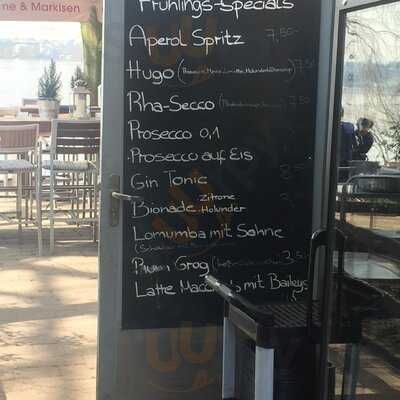 ne & Markisen
Frühlings-Specials
Aperol Spritz 7,50-
Hugo (Prosecco, Minze, Limette, Holundersirup) 7,50
Rha-Secco 7,50
Prosecco 0,1
Prosecco auf Eis
Gin Tonic 8,5
Zitrone
Bionade Holunder
Lomumba mit Sahne
Grog 3,50
Latte Macchiato mit Baileys